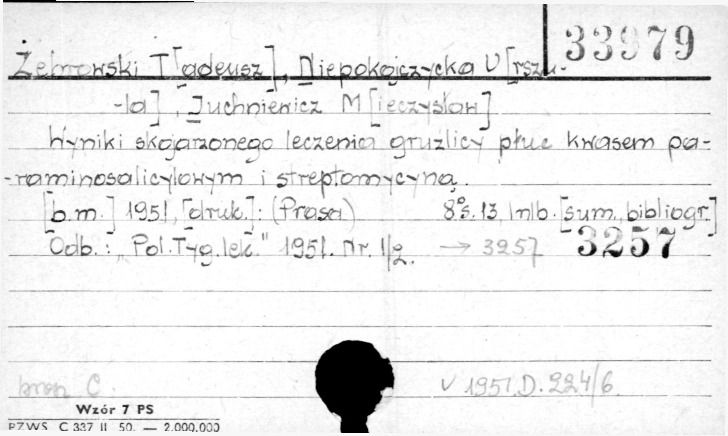 33979
Żebrowski T[adeusz], Niepokojczycka U[rszu-
-la], Juchniewicz M[ieczysław]
Wyniki skojarzonego leczenia gruźlicy płuc kwasem pa-
-raminosalicylowym i streptomycyną.
[b.m.] 1951, [druk.]: (Prasa) 8° s. 13, lnlb. [sum., bibliogr.]
Odb.: „Pol. Tyg. lek." 1951. Nr. 1/2. → 3257 3257
brosz C. V 1951.D. 224/6.
Wzór 7 PS
PZWS C 337 II 50. — 2.000.000